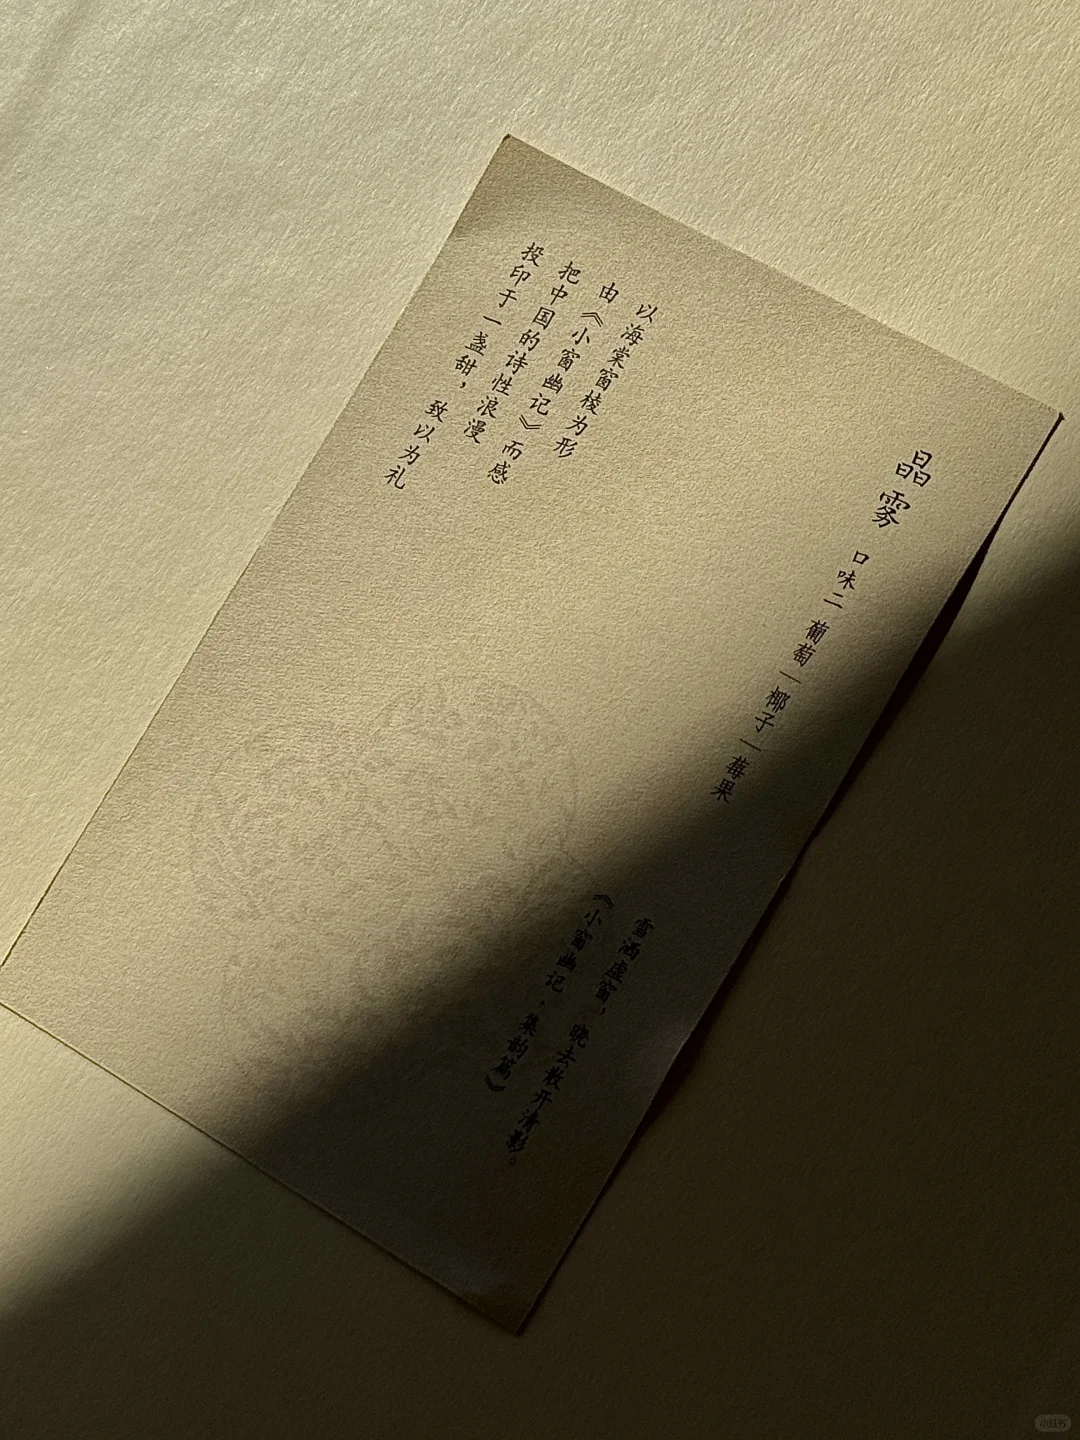 晶雾
口味二 葡萄|椰子|莓果
以海棠窗棱为形
由《小窗幽记》而感
把中国的诗性浪漫
投印于一盏甜，致以为礼
雪洒虚窗，晓去散开清影。
《小窗幽记·集韵篇》
小红书